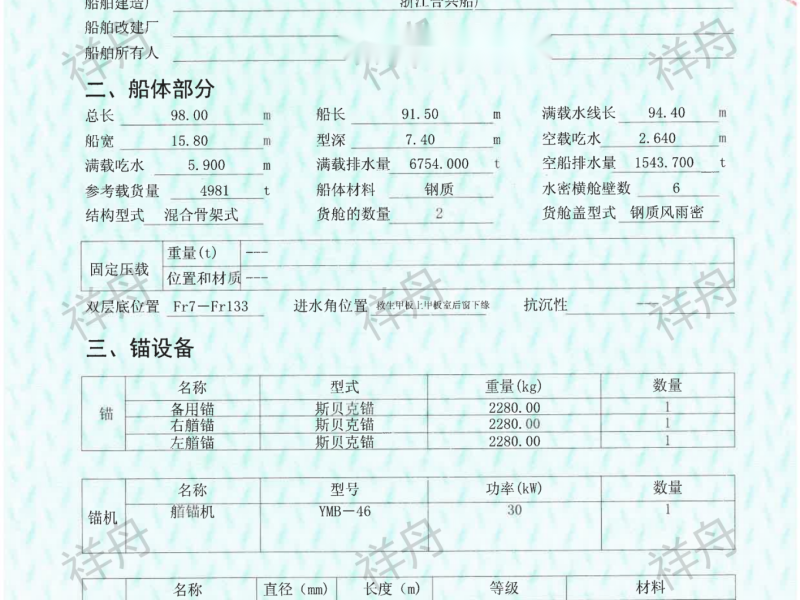 船舶建造厂 浙江合兴船厂
船舶改建厂
船舶所有人
二、船体部分
总长 98.00 m 船长 91.50 m 满载水线长 94.40 m
船宽 15.80 m 型深 7.40 m 空载吃水 2.640 m
满载吃水 5.900 m 满载排水量 6754.000 t 空船排水量 1543.700 t
参考载货量 4981 t 船体材料 钢质 水密横舱壁数 6
结构型式 混合骨架式 货舱的数量 2 货舱盖型式 钢质风雨密
固定压载 重量(t) ---
位置和材质 ---
双层底位置 Fr7-Fr133 进水角位置 救生甲板上甲板室后窗下缘 抗沉性 ---
三、锚设备
锚 名称 型式 重量(kg) 数量
备用锚 斯贝克锚 2280.00 1
右艏锚 斯贝克锚 2280.00 1
左艏锚 斯贝克锚 2280.00 1
锚机 名称 型号 功率(kW) 数量
艏锚机 YMB-46 30 1
名称 直径(mm) 长度(m) 等级 材料
祥舟
祥舟
祥舟
祥舟
祥舟
祥舟
祥舟
祥舟
祥舟